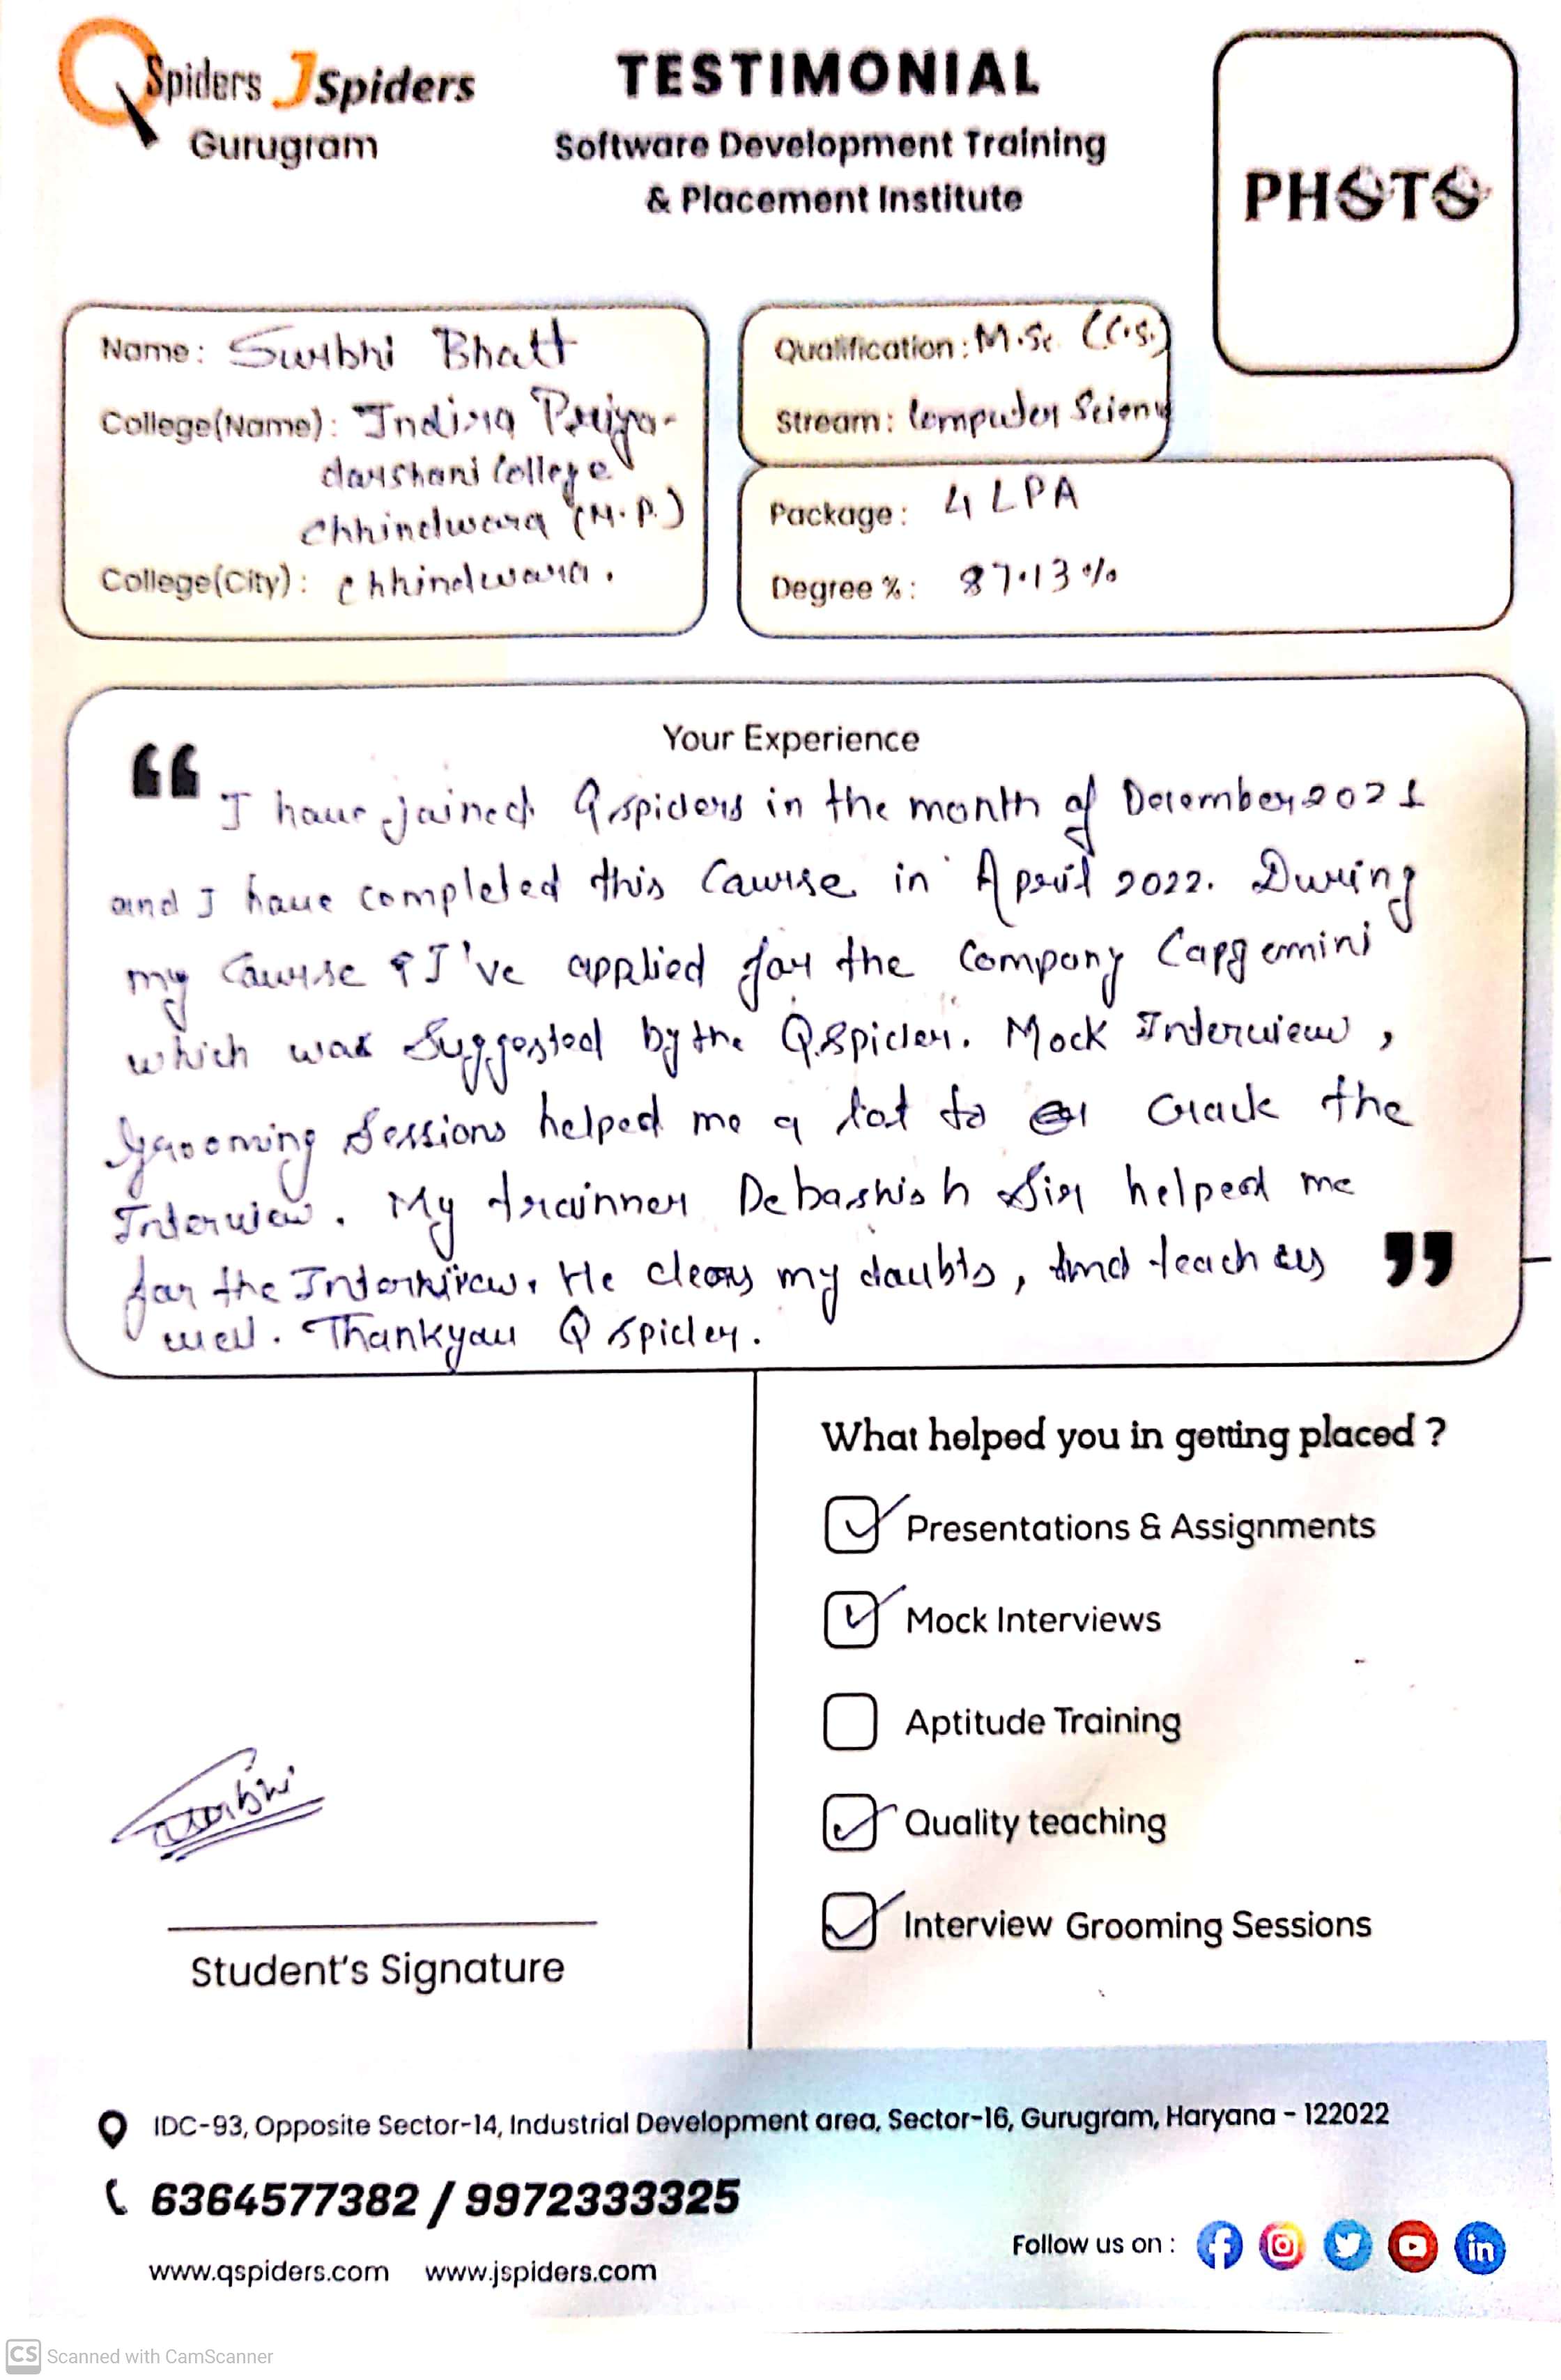 QSpiders JSpiders
Gurugram
TESTIMONIAL
Software Development Training
& Placement Institute
PHOTO
Name: Surbhi Bhatt
College(Name): Indira Priya-
darshani College
Chhindwara (M.P.)
College(City): Chhindwara.
Qualification: M.Sc. (C.S.)
Stream: Computer Science
Package: 4 LPA
Degree %: 87.13%
Your Experience
“ I have joined Qspiders in the month of December 2021
and I have completed this Course in April 2022. During
my Course I've applied for the Company Capgemini
which was Suggested by the QSpider. Mock Interview,
Grooming Sessions helped me a lot to Crack the
Interview. My trainner Debashish Sir helped me
for the Interview. He clears my doubts, And teach us ”
well. Thankyou Q spider.
What helped you in getting placed ?
Presentations & Assignments
Mock Interviews
Aptitude Training
Quality teaching
Interview Grooming Sessions
Surbhi
Student's Signature
IDC-93, Opposite Sector-14, Industrial Development area, Sector-16, Gurugram, Haryana - 122022
6364577382 / 9972333325
www.qspiders.com www.jspiders.com
Follow us on :
CS Scanned with CamScanner